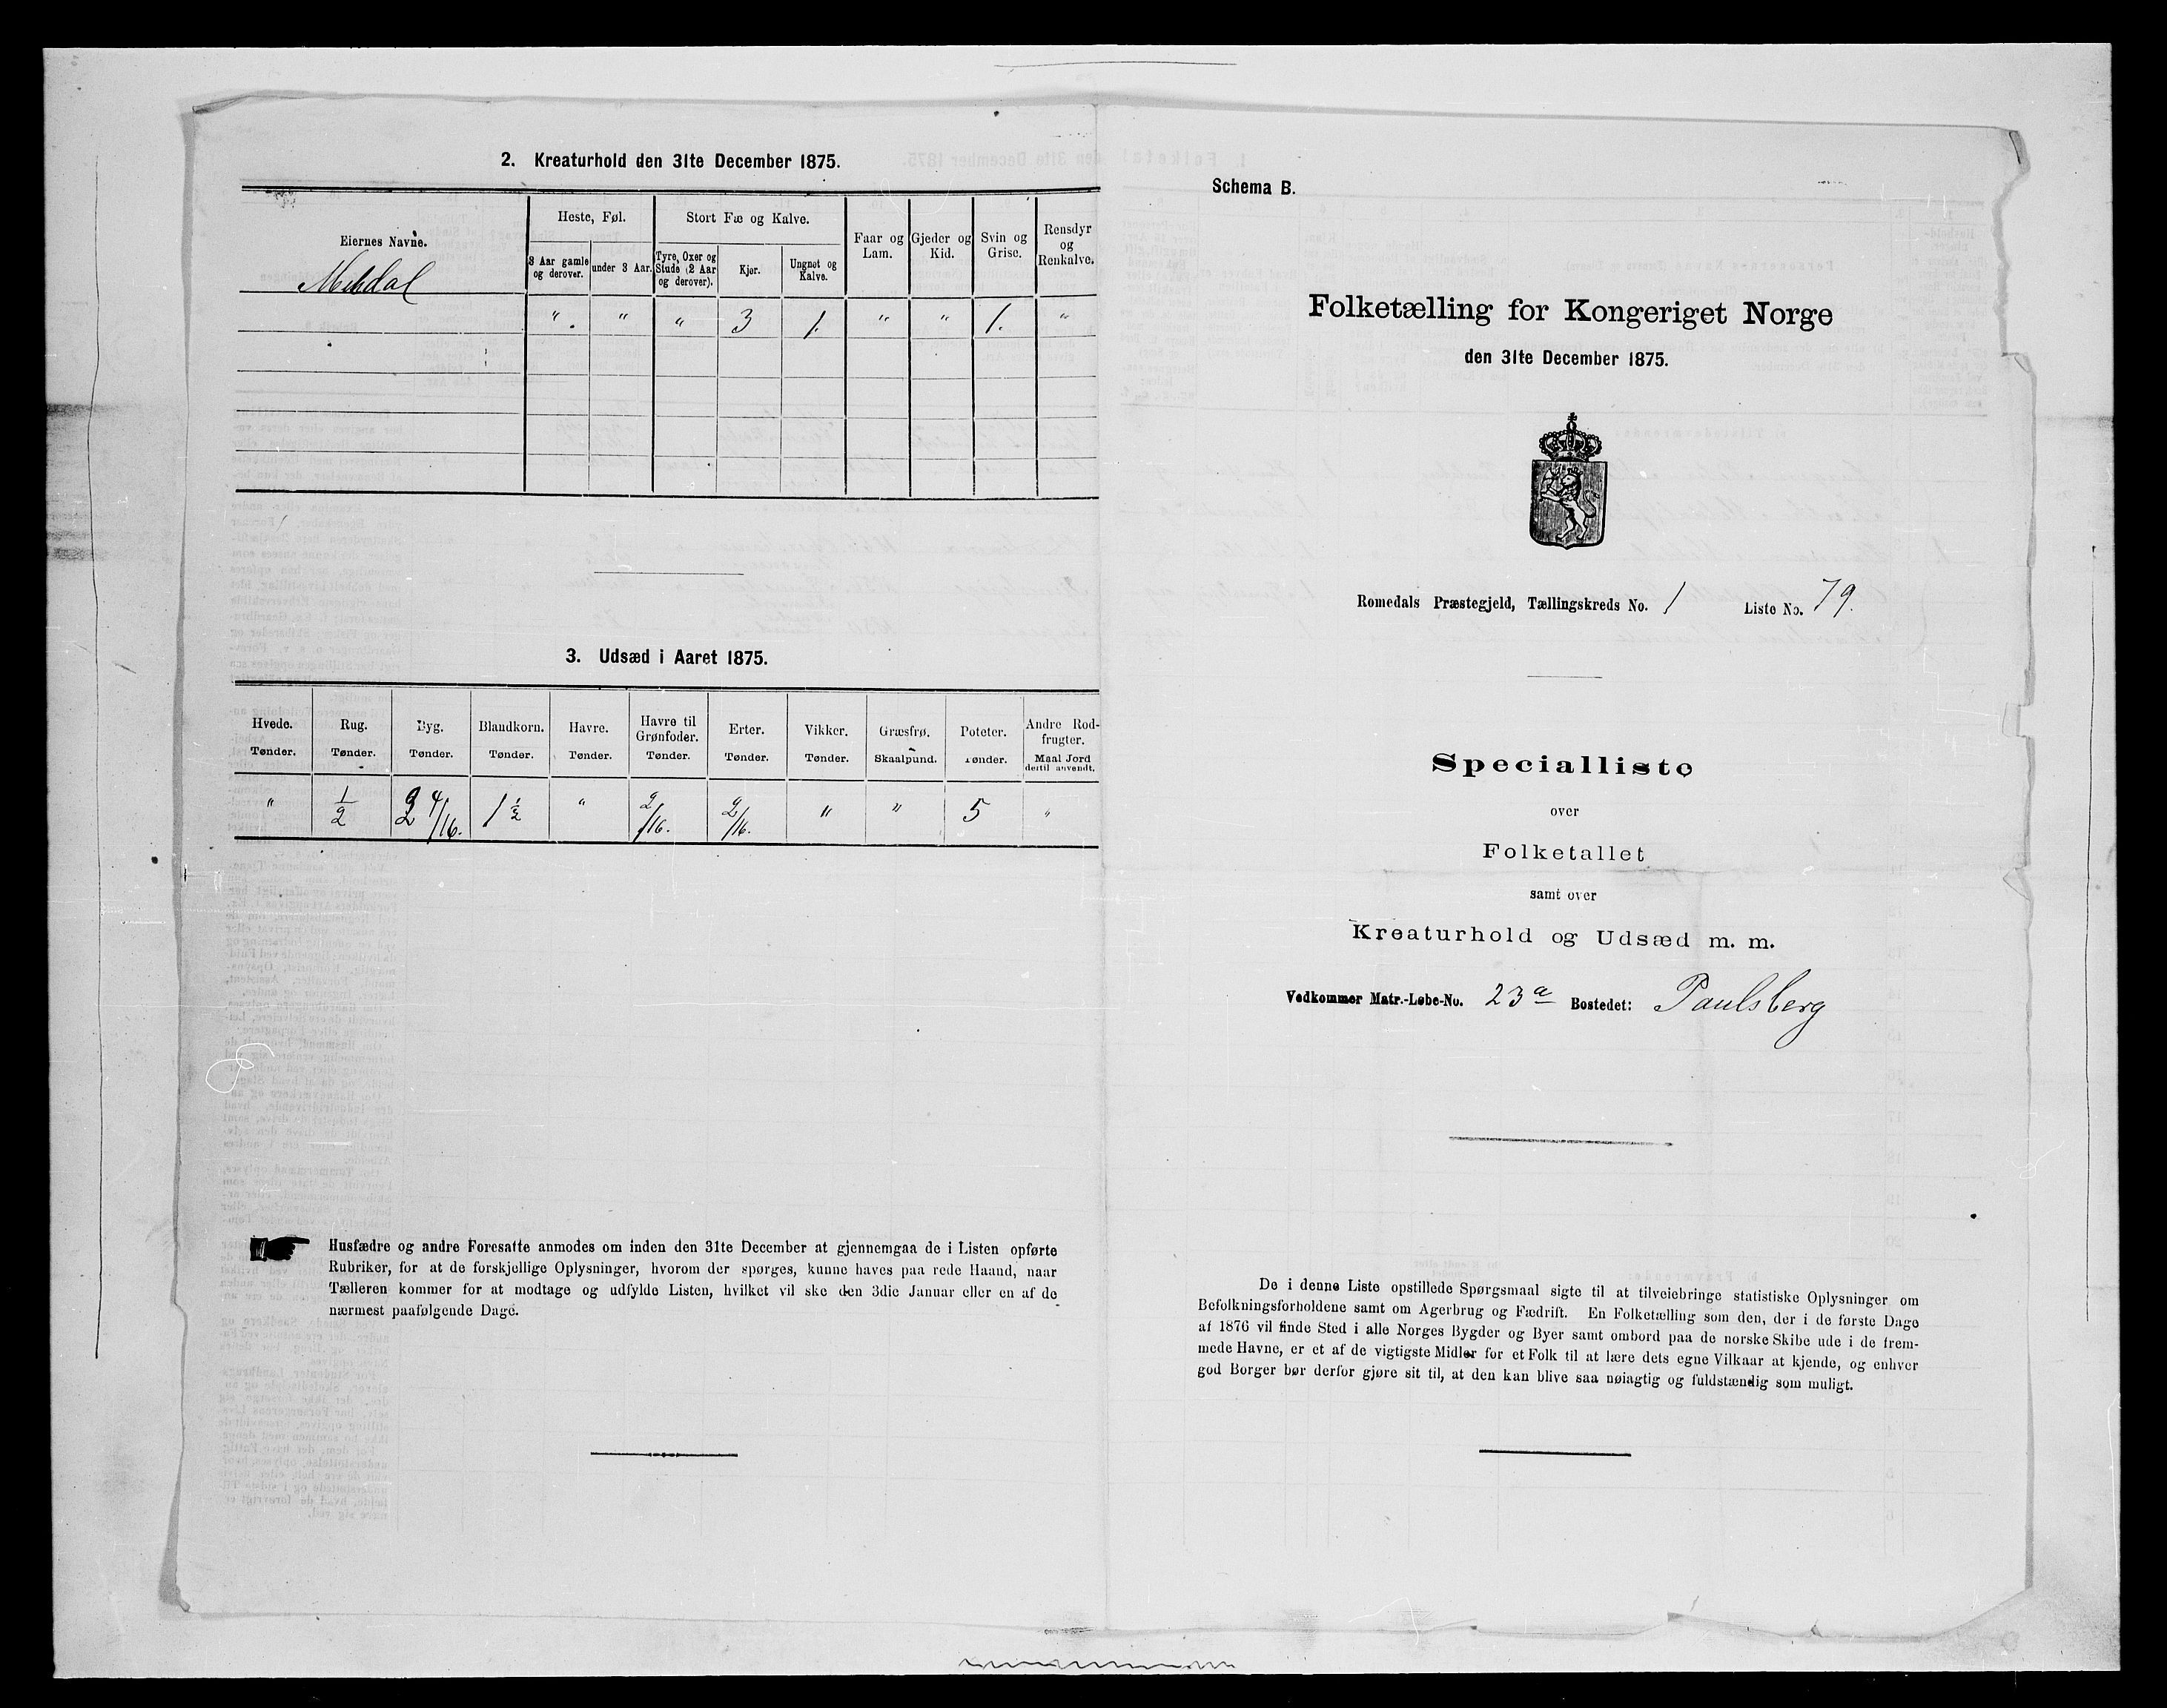 2. Kreaturhold den 31te December 1875.
Eiernes Navne.
Heste, Føl.
Stort Fæ og Kalve.
Faar og Lam.
Gjeder og Kid.
Svin og Grise.
Rensdyr og Renkalve.
3 Aar gamle og derover.
under 3 Aar.
Tyre, Oxer og Stude (2 Aar og derover).
Kjør.
Ungnøt og Kalve.
" . " " 3 1. " " 1. "
3. Udsæd i Aaret 1875.
Hvede. Rug. Byg. Blandkorn. Havre. Havre til Grønfoder. Erter. Vikker. Græsfrø. Poteter. Andre Rodfrugter.
Tønder. Tønder. Tønder. Tønder. Tønder. Tønder. Tønder. Tønder. Skaalpund. Tønder. Maal Jord dertil anvendt.
" 1/2 2 4/16. 1 1/2 " 2/16. 2/16. " " 5 "
Husfædre og andre Foresatte anmodes om inden den 31te December at gjennemgaa de i Listen opførte
Rubriker, for at de forskjellige Oplysninger, hvorom der spørges, kunne haves paa rede Haand, naar
Tælleren kommer for at modtage og udfylde Listen, hvilket vil ske den 3die Januar eller en af de
nærmest paafølgende Dage.
Schema B.
Folketælling for Kongeriget Norge
den 31te December 1875.
Romedals Præstegjeld, Tællingskreds No. 1 Liste No. 79.
Specialliste
over
Folketallet
samt over
Kreaturhold og Udsæd m. m.
Vedkommer Matr.-Løbe-No. 23a Bostedet: Paulsberg
De i denne Liste opstillede Spørgsmaal sigte til at tilveiebringe statistiske Oplysninger om
Befolkningsforholdene samt om Agerbrug og Fædrift. En Folketælling som den, der i de første Dage
af 1876 vil finde Sted i alle Norges Bygder og Byer samt ombord paa de norske Skibe ude i de frem-
mede Havne, er et af de vigtigste Midler for et Folk til at lære dets egne Vilkaar at kjende, og enhver
god Borger bør derfor gjøre sit til, at den kan blive saa nøiagtig og fuldstændig som muligt.